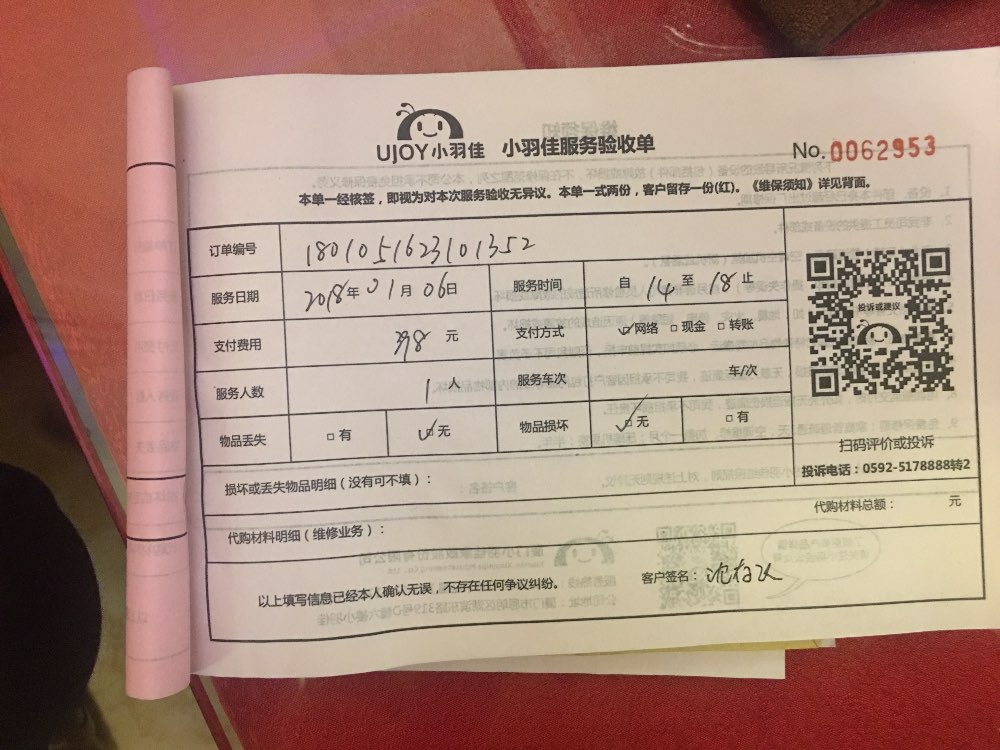 UJOY小羽佳 小羽佳服务验收单 No.0062953
本单一经核签，即视为对本次服务验收无异议。本单一式两份，客户留存一份(红)。《维保须知》详见背面。
订单编号 1801051623101352
服务日期 2018年01月06日 服务时间 自14至18止
支付费用 元 支付方式 网络 现金 转账
服务人数 1人 服务车次 车/次
物品丢失 有 无 物品损坏 无 有
投诉或建议
扫码评价或投诉
投诉电话：0592-5178888转2
损坏或丢失物品明细（没有可不填）：
代购材料明细（维修业务）： 代购材料总额： 元
以上填写信息已经本人确认无误，不存在任何争议纠纷。 客户签名：